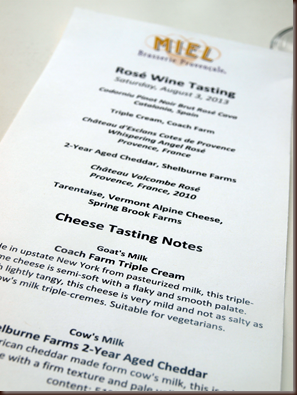 MIEL
Brasserie Provençale
Rosé Wine Tasting
Saturday, August 3, 2013
Codorniu Pinot Noir Brut Rosé Cava
Catalonia, Spain
Triple Cream, Coach Farm
Château d'Esclans Cotes de Provence
Whispering Angel Rosé
Provence, France
2-Year Aged Cheddar, Shelburne Farms
Château Valcombe Rosé
Provence, France, 2010
Tarentaise, Vermont Alpine Cheese,
Spring Brook Farms
Cheese Tasting Notes
Goat's Milk
Coach Farm Triple Cream
de in upstate New York from pasteurized milk, this triple-
me cheese is semi-soft with a flaky and smooth palate.
lightly tangy, this cheese is very mild and not as salty as
ow's milk triple-cremes. Suitable for vegetarians.
Cow's Milk
elburne Farms 2-Year Aged Cheddar
rican cheddar made form cow's milk, this is
e with a firm texture and pale
content: